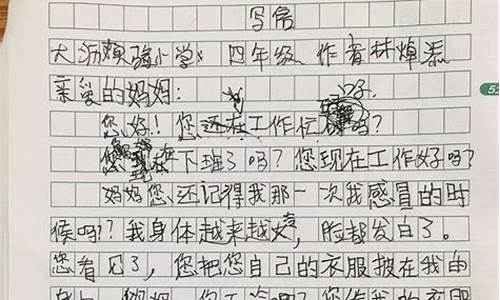 写信
大沥实验小学 四年级 作者林焯
亲爱的妈妈:
您好!您还在工作忙吗?
您现在下班了吗?您现在工作好吗?
妈妈您还记得我那一次我感冒的时
候吗?我身体越来越,脸都发白了。
您看见了,您把您自己的衣服披在我的
身上,妈妈,您不冷吗?您